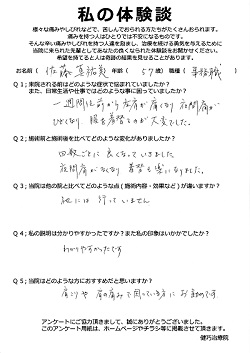 私の体験談
様々な痛みやしびれなどで、苦しんでおられる方たちがたくさんおられます。
痛みを持つ人はひとりでは不安になるものです。
そんな辛い痛みやしびれを持つ人達を励まし、治療を続ける勇気を与えるために
当院に来られた先輩としてあなたの良くなられた体験談をお聞かせください。
希望を持てるとすごい奇跡的な結果を見せることがあります。
お名前（ 佐藤 真祐美 年齢（ 57 歳）職種（ 事務職 ）
Q1；来院される前はどのような症状で悩まれていましたか？
また、日常生活や仕事ではどのような事に困っていましたか？
一週間位前から左肩が痛くなり夜間痛が
ひどくなり 服を着替えるのが大変でした。
Q2；施術前と施術後を比べてどのような変化がありましたか？
回数ごとに良くなっていきました
夜間痛がなくなり 着替も楽になりました。
Q3；当院は他の院と比べてどのような点（施術内容・効果など）が違いますか？
他には行っていません
Q4；私の説明は分かりやすかったですか？また私の印象はいかでしたか？
わかりやすかったです
Q5；当院はどのような方におすすめだと思いますか？
肩こりや肩の痛みで困っている方に お勧めです。
アンケートにご協力頂きまして、誠にありがとうございました。
このアンケート用紙は、ホームページやチラシ等に掲載させて頂きます。
健巧治療院